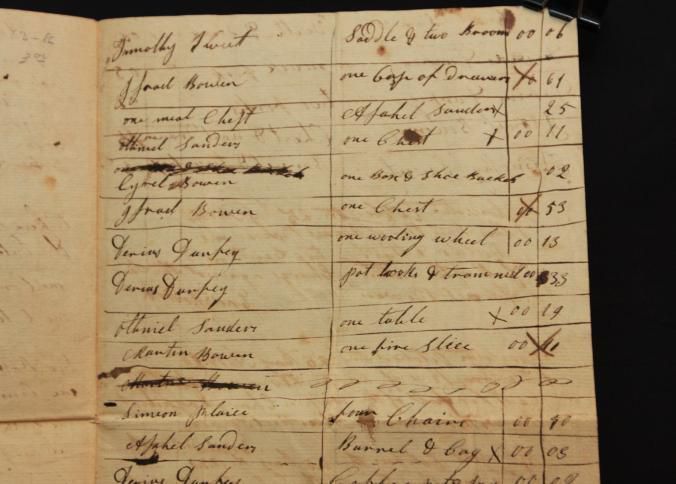 Timothy Sweet Saddle & two Broom 00 06
Israel Bowen one Case of Drawers 61
one meal Chest Asahel Sanders X 25
Othniel Sanders one Chest X 00 11
Cyrel Bowen one Box & Shoe Bucket 02
Israel Bowen one Chest 53
Derius Durfey one wooling wheel 00 13
Derius Durfey pot hooks & trammel 00 33
Othniel Sanders one table X 00 19
Martin Bowen one fire Slice 00
Simeon Place four Chairs 00 50
Asahel Sanders Barrel & Cag X 00 03
Derius Durfey